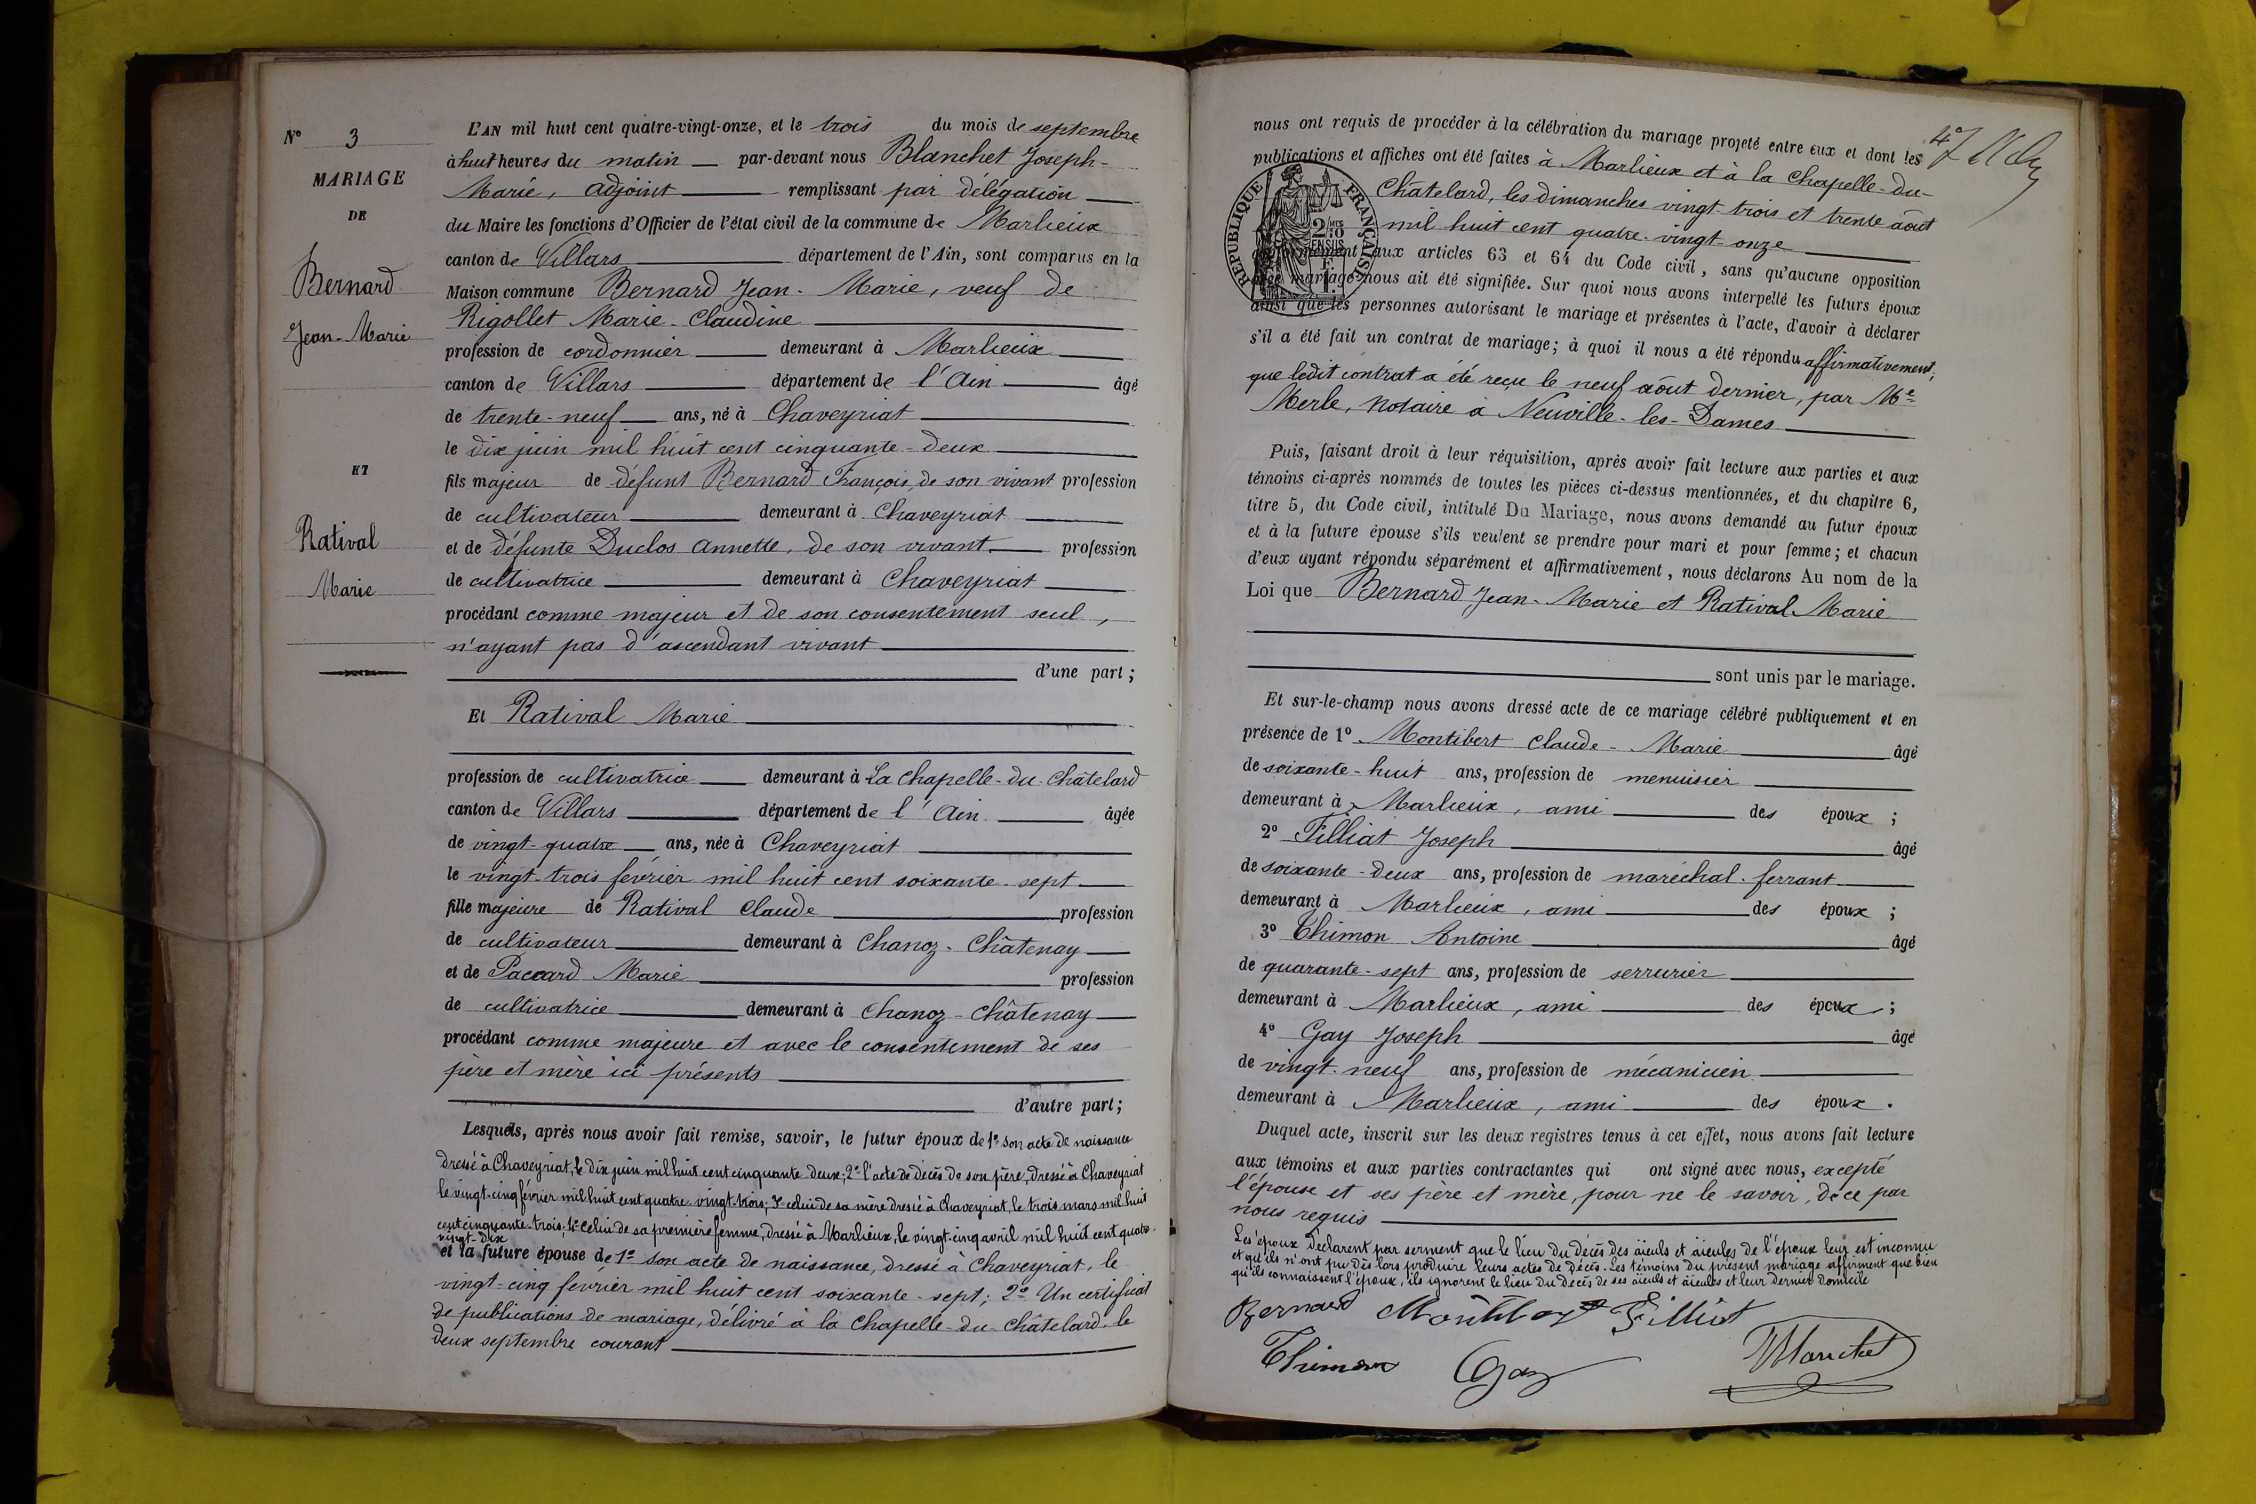 N° 3
MARIAGE
DE
Bernard
Jean-Marie
ET
Ratival
Marie
L'AN mil huit cent quatre-vingt-onze, et le trois du mois de septembre
à huit heures du matin par-devant nous Blanchet Joseph-
Marie, adjoint remplissant par délégation
du Maire les fonctions d'Officier de l'état civil de la commune de Marlieux
canton de Villars département de l'Ain, sont comparus en la
Maison commune Bernard Jean-Marie, veuf de
Rigollet Marie-Claudine
profession de cordonnier demeurant à Marlieux
canton de Villars département de l'Ain âgé
de trente-neuf ans, né à Chaveyriat
le dix juin mil huit cent cinquante-deux
fils majeur de défunt Bernard François, de son vivant profession
de cultivateur demeurant à Chaveyriat
et de défunte Duclos Annette, de son vivant profession
de cultivatrice demeurant à Chaveyriat
procédant comme majeur et de son consentement seul,
n'ayant pas d'ascendant vivant
d'une part;
Et Ratival Marie
profession de cultivatrice demeurant à La Chapelle-du-Châtelard
canton de Villars département de l'Ain âgée
de vingt-quatre ans, née à Chaveyriat
le vingt-trois février mil huit cent soixante-sept
fille majeure de Ratival Claude profession
de cultivateur demeurant à Chanoz-Châtenay
et de Paccard Marie profession
de cultivatrice demeurant à Chanoz-Châtenay
procédant comme majeure et avec le consentement de ses
père et mère ici présents
d'autre part;
Lesquels, après nous avoir fait remise, savoir, le futur époux de 1° son acte de naissance
dressé à Chaveyriat, le dix juin mil huit cent cinquante-deux; 2° l'acte de décès de son père, dressé à Chaveyriat
le vingt-cinq février mil huit cent quatre-vingt-trois; 3° celui de sa mère dressé à Chaveyriat, le trois mars mil huit
cent cinquante-trois; 4° celui de sa première femme, dressé à Marlieux, le vingt-cinq avril mil huit cent quatre-
vingt-dix
et la future épouse de 1° son acte de naissance, dressé à Chaveyriat, le
vingt-cinq février mil huit cent soixante-sept; 2° Un certificat
de publications de mariage, délivré à la Chapelle-du-Châtelard, le
deux septembre courant
nous ont requis de procéder à la célébration du mariage projeté entre eux et dont les
publications et affiches ont été faites à Marlieux et à la Chapelle-du-
Châtelard, les dimanches vingt-trois et trente août
mil huit cent quatre-vingt-onze
RÉPUBLIQUE FRANÇAISE
aux articles 63 et 64 du Code civil, sans qu'aucune opposition
mariage nous ait été signifiée. Sur quoi nous avons interpellé les futurs époux
ainsi que les personnes autorisant le mariage et présentes à l'acte, d'avoir à déclarer
s'il a été fait un contrat de mariage; à quoi il nous a été répondu affirmativement,
que ledit contrat a été reçu le neuf août dernier, par Me
Merle, notaire à Neuville-les-Dames
Puis, faisant droit à leur réquisition, après avoir fait lecture aux parties et aux
témoins ci-après nommés de toutes les pièces ci-dessus mentionnées, et du chapitre 6,
titre 5, du Code civil, intitulé Du Mariage, nous avons demandé au futur époux
et à la future épouse s'ils veulent se prendre pour mari et pour femme; et chacun
d'eux ayant répondu séparément et affirmativement, nous déclarons Au nom de la
Loi que Bernard Jean-Marie et Ratival Marie
sont unis par le mariage.
Et sur-le-champ nous avons dressé acte de ce mariage célébré publiquement et en
présence de 1° Montibert Claude-Marie âgé
de soixante-huit ans, profession de menuisier
demeurant à Marlieux, ami des époux;
2° Filliat Joseph âgé
de soixante-deux ans, profession de maréchal-ferrant
demeurant à Marlieux, ami des époux;
3° Thimon Antoine âgé
de quarante-sept ans, profession de serrurier
demeurant à Marlieux, ami des époux;
4° Gay Joseph âgé
de vingt-neuf ans, profession de mécanicien
demeurant à Marlieux, ami des époux.
Duquel acte, inscrit sur les deux registres tenus à cet effet, nous avons fait lecture
aux témoins et aux parties contractantes qui ont signé avec nous, excepté
l'épouse et ses père et mère, pour ne le savoir, de ce par
nous requis
Les époux déclarent par serment que le lieu du décès des aïeuls et aïeules de l'époux leur est inconnu
et qu'ils n'ont pu dès lors produire leurs actes de décès. Les témoins du présent mariage affirment que bien
qu'ils connaissent l'époux, ils ignorent le lieu du décès de ses aïeuls et aïeules et leur dernier domicile
Bernard Montibert Filliat
Thimon Gay Blanchet